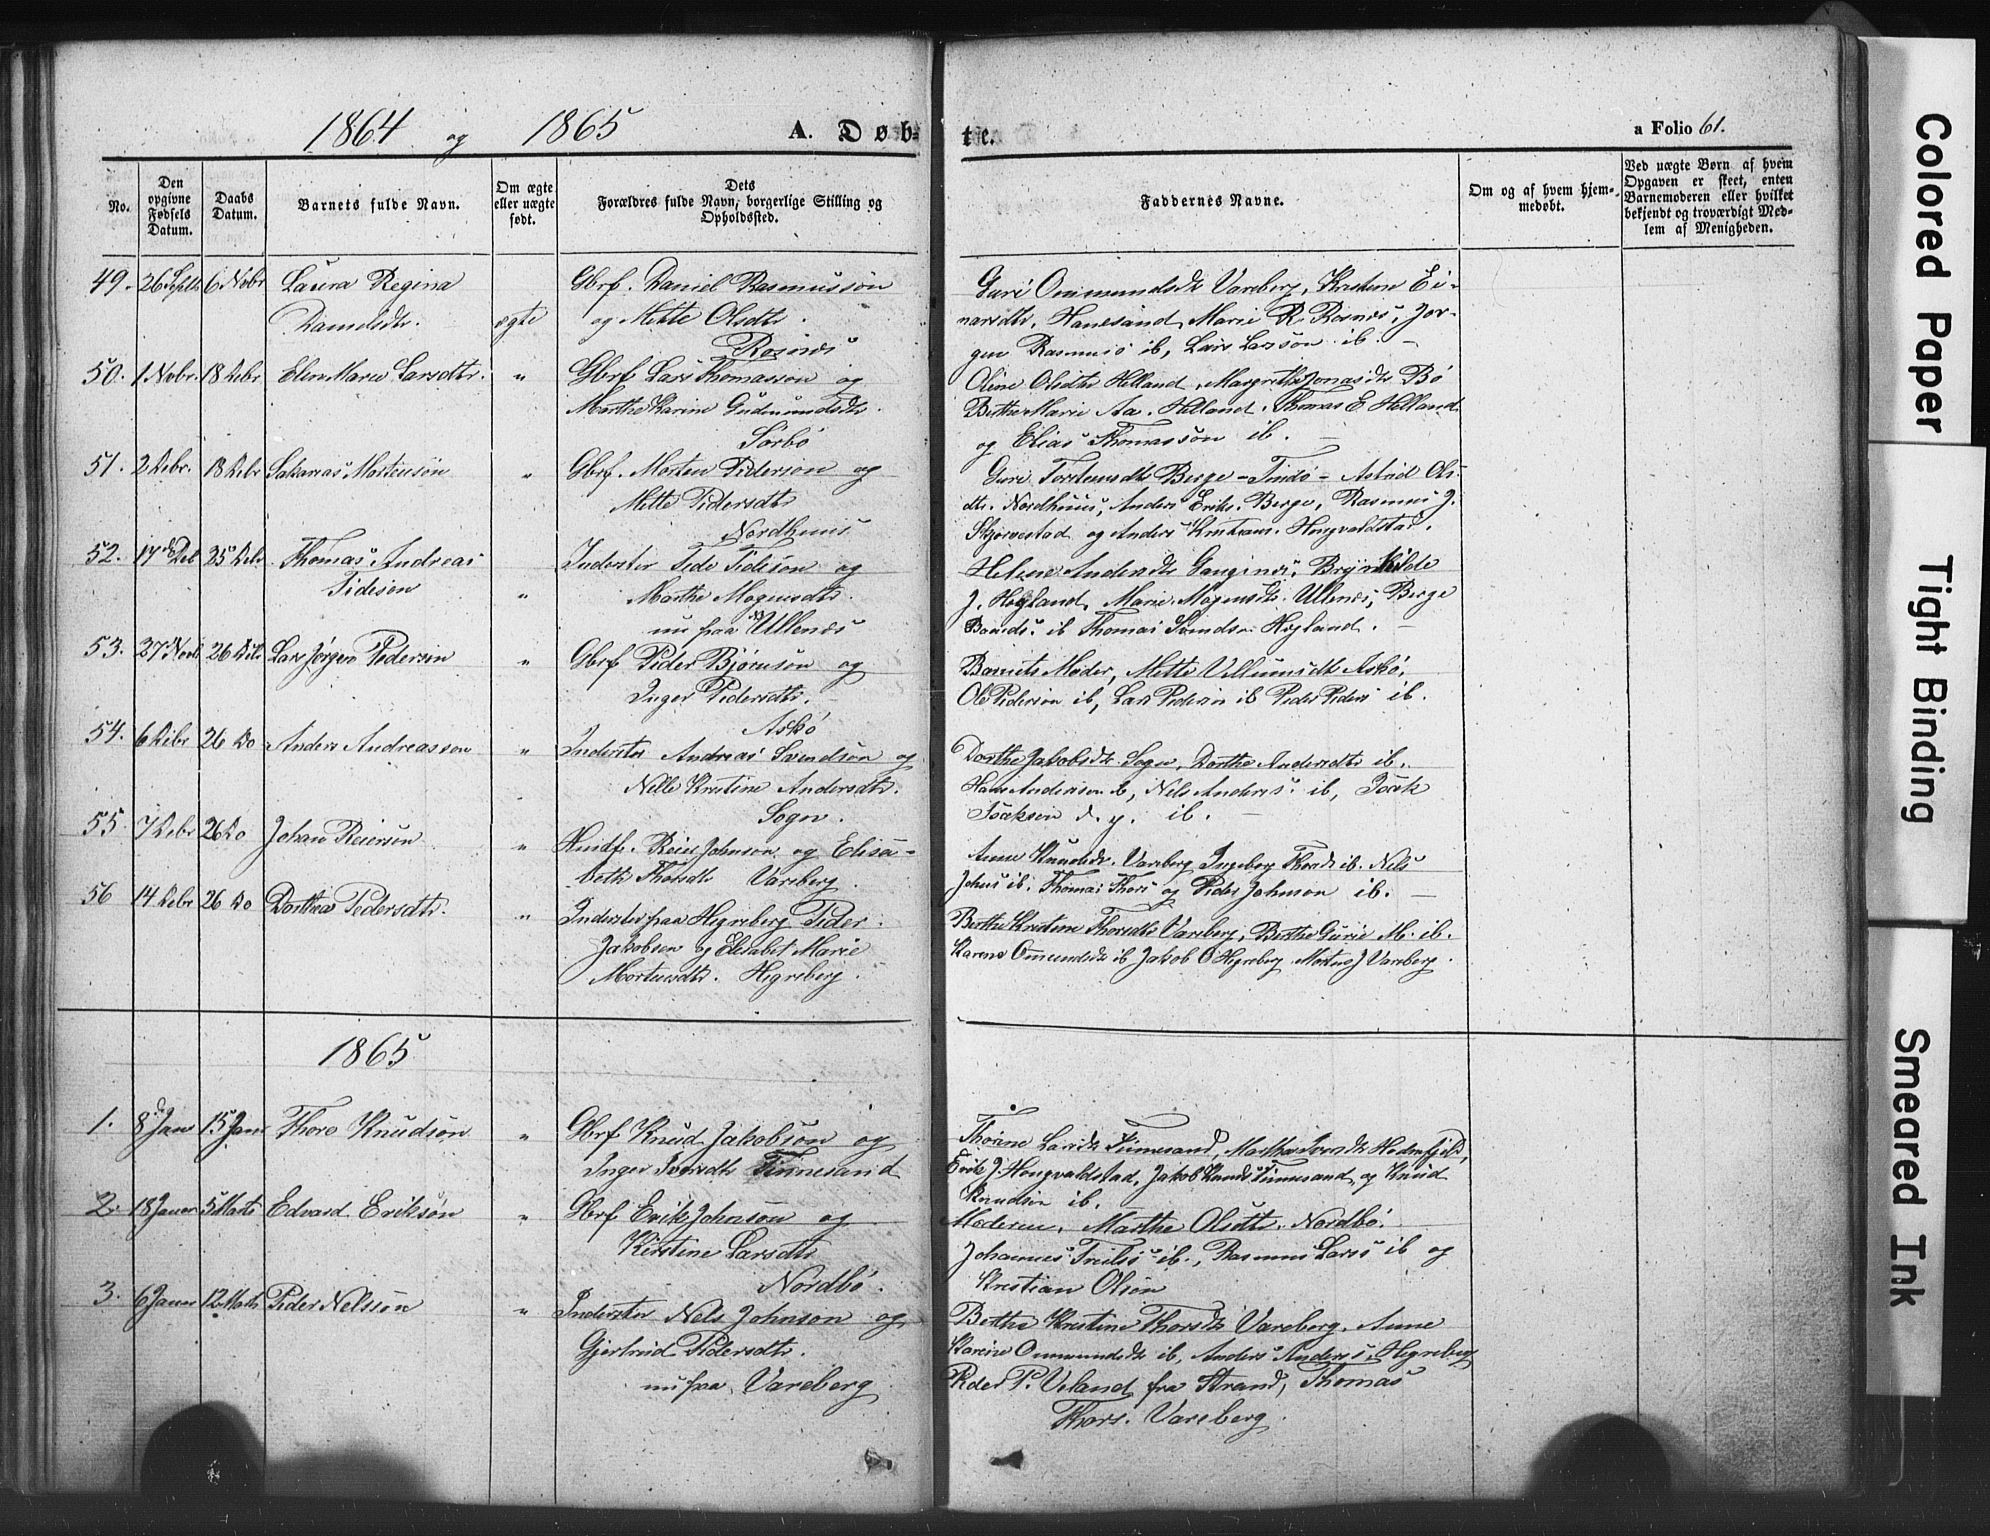 1864 og 1865 A. Døb-
te. a Folio 61.
No.
Den opgivne Fødsels Datum.
Daabs Datum.
Barnets fulde Navn.
Om ægte eller uægte født.
Dets Forældres fulde Navn, borgerlige Stilling og Opholdssted.
Faddernes Navne.
Om og af hvem hjem-medøbt.
Ved uægte Børn af hvem Opgaven er skeet, enten Barnemoderen eller hvilket bekjendt og troværdigt Med-lem af Menigheden.
49. 26 Septbr 6 Novbr Laura Regina Gbrf. Daniel Rasmusson
Danielsdtr. ægte og Mette Olsdtr.
Rosnæs
Guri Ommundsdtr Vareberg, Kristine Ei-
narsdtr. Hanesand, Marie R. Rosnes, Jør-
gen Rasmuss ib, Lars Larsson ib.
50. 1 Novbr. 18 Debr Elen Marie Larsdtr. " Gbrf Lars Thomasson og
Marthe Karine Gudmundsdtr.
Sørbø
Oline Olsdtr Helland, Margrethe Jonasdtr Bø
Berthe Marie Aa. Helland, Thomas E Helland
og Elias Thomasson ib.
51. 2 Debr. 18 Debr Sakarias Mortensøn " Gbrf. Morten Pedersøn og
Mette Pedersdtr
Nordhuus
Guri Torstensdtr Berge - Findø - Astrid Ols-
dtr. Nordhuus, Anders Eriks. Berge, Rasmus J.
Skjørvestad og Anders Kristians. Hougvaldstad.
52. 17de Deb 25 Debr Thomas Andreas Inderster Tide Tidesøn og
Tidesøn " Marthe Mogensdtr.
nu paa Ullenes
Helene Andersdtr Gangenes, Brynhilde
J. Høyland, Marie Mogensdtr. Ullenes, Berge
Baards. ib Thomas Svends. Høyland.
53. 27 Novb 26 Debr Lars Jørgen Pedersen " Gbrf Peder Bjørnsøn og
Inger Pedersdtr.
Askø
Barnets Moder, Mette Villumsdtr Askø,
Ole Pedersøn ib, Lars Pedersen ib Peder Peders ib.
54. 6 Debr 26 Do Anders Andreassøn " Inderster Andreas Svendsøn og
Nille Kristine Andersdtr.
Sogn.
Dorthe Jakobsdtr Sogn, Dorthe Andersdtr ib.
Hans Andersen ib, Nels Anders. ib, Isak
Isaksen d. y. ib.
55. 7 Debr 26 Do Johan Reiersøn " Huusf. Reier Johnson og Elisa-
beth Thorsdtr Vareberg.
Anne Knudsdtr. Vareberg, Ingeborg Thorsdtr ib. Nels
Johns ib. Thomas Thors og Peder Johnson ib.
56 14 Debr 26 Do Dorthea Pedersdtr. " Inderster paa Hegreberg Peder
Jakobsen og Elisabet Marie
Mortensdtr. Hegreberg.
Berthe Kristine Thorsdtr Vareberg, Berthe Gurie M. ib.
Karen Ommundsdtr ib Jakob O Hegreberg Morten J Vareberg.
1865
1. 8de Jan 15 Janr Thore Knudsøn " Gbrf Knud Jakobsøn og
Inger Iversdtr Finnesand
Thorine Larsdtr Finnesand, Martha Iversdtr Hodnefjeld,
Erik J. Hougvaldstad, Jakob Knuds Finnesand, og Knud
Knudsen ib.
2. 18 Januar 5 Marts Edvard Eriksøn " Gbrf Erik Johnson og
Kirstine Larsdtr
Nordbø.
Moderen, Marthe Olsdtr. Nordbø.
Johannes Troels. ib., Rasmus Lars ib og
Kristian Olsøn
3. 6 Januar 12 Marts Peder Nelssøn " Inderster Nels Johnson og
Gjertrud Pedersdtr.
nu paa Vareberg
Berthe Kristine Thorsdtr Vareberg, Anne
Karine Ommundsdtr ib, Anders Anders. Hegreberg
Peder P. Veland fra Strand, Thomas
Thors. Vareberg.
Colored Paper
Tight Binding
Smeared Ink